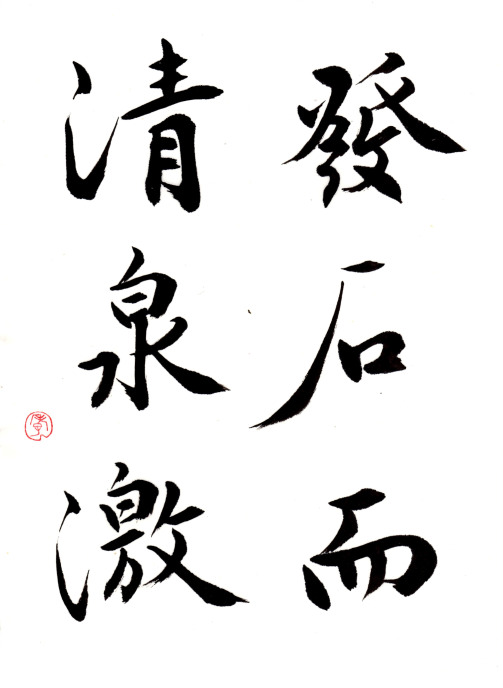 發石而
清泉激